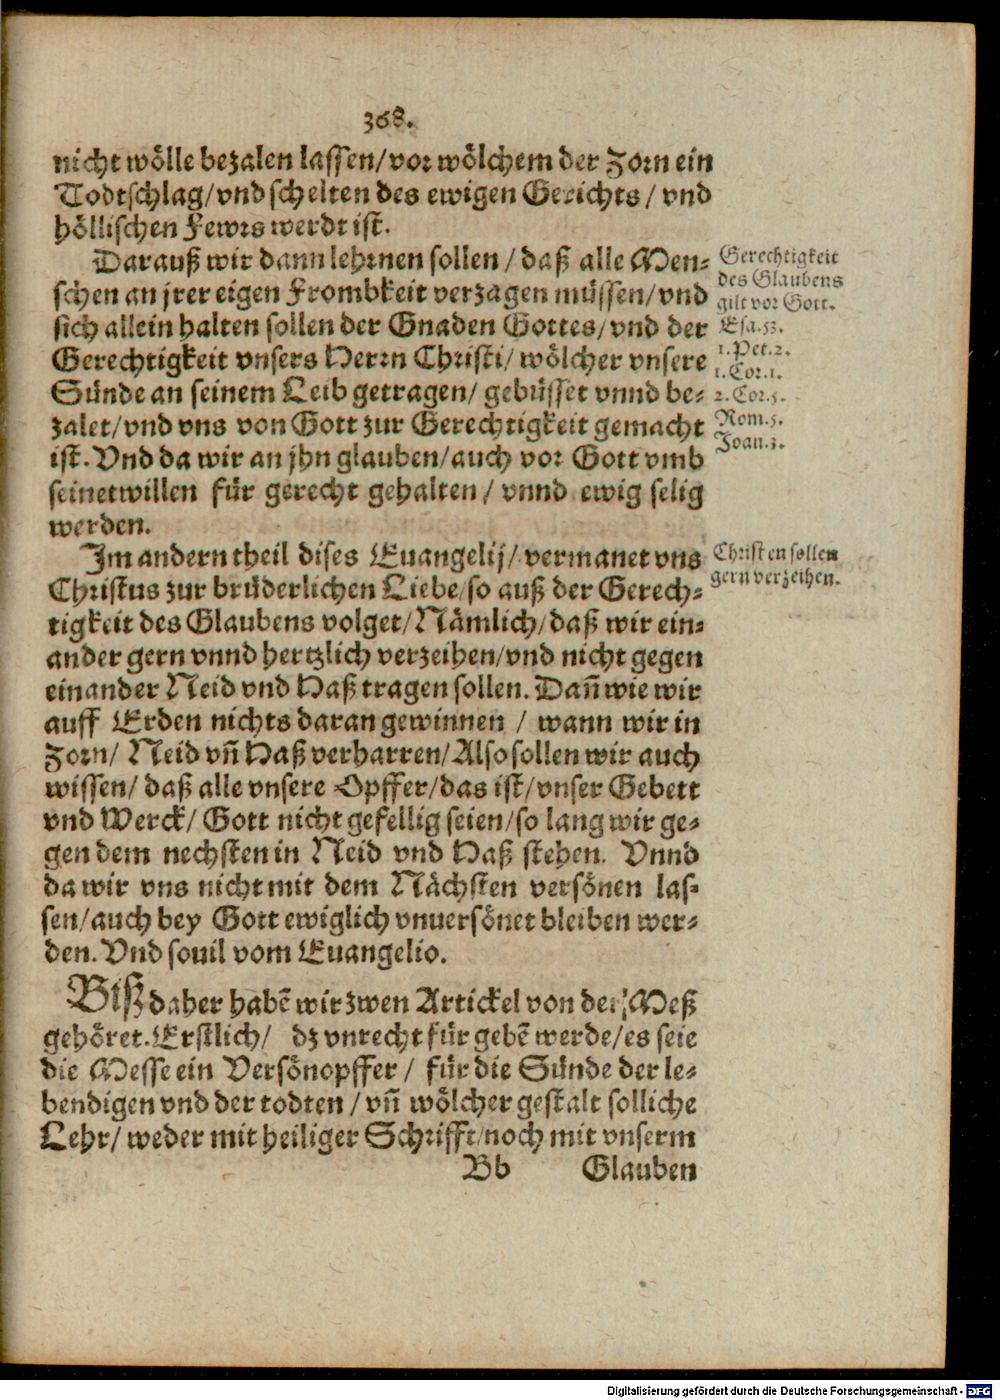 368.
nicht wölle bezalen lassen/vor wölchem der Zorn ein
Todtschlag/vnd schelten des ewigen Gerichts/ vnd
höllischen Fewrs werdt ist.
Darauß wir dann lehrnen sollen/daß alle Men-
schen an jrer eigen Frombkeit verzagen müssen/vnd
sich allein halten sollen der Gnaden Gottes/vnd der
Gerechtigkeit vnsers Herrn Christi/ wölcher vnsere
Sünde an seinem Leib getragen/ gebüsset vnnd be-
zalet/vnd vns von Gott zur Gerechtigkeit gemacht
ist. Vnd da wir an jhn glauben/auch vor Gott vmb
seinetwillen für gerecht gehalten/ vnnd ewig selig
werden.
Gerechtigkeit
des Glaubens
gilt vor Gott.
Esa.53.
1.Pet.2.
1.Cor.1.
2.Cor.5.
Rom.5.
Joan.3.
Im andern theil dises Euangelij/ vermanet vns
Christus zur brüderlichen Liebe/so auß der Gerech-
tigkeit des Glaubens volget/Nämlich/daß wir ein-
ander gern vnnd hertzlich verzeihen/vnd nicht gegen
einander Neid vnd Haß tragen sollen. Dañ wie wir
auff Erden nichts daran gewinnen / wann wir in
Zorn/ Neid vñ Haß verharren/Also sollen wir auch
wissen/ daß alle vnsere Opffer/das ist/vnser Gebett
vnd Werck/ Gott nicht gefellig seien/so lang wir ge-
gen dem nechsten in Neid vnd Haß stehen. Vnnd
da wir vns nicht mit dem Nächsten versönen las-
sen/auch bey Gott ewiglich vnuersönet bleiben wer-
den. Vnd souil vom Euangelio.
Christen sollen
gern verzeihen.
Biß daher habē wir zwen Artickel von der Meß
gehöret. Erstlich/ dz vnrecht für gebē werde/es seie
die Messe ein Versönopffer/ für die Sünde der le-
bendigen vnd der todten/vñ wölcher gestalt solliche
Lehr/ weder mit heiliger Schrifft/noch mit vnserm
Bb Glauben
Digitalisierung gefördert durch die Deutsche Forschungsgemeinschaft - DFG